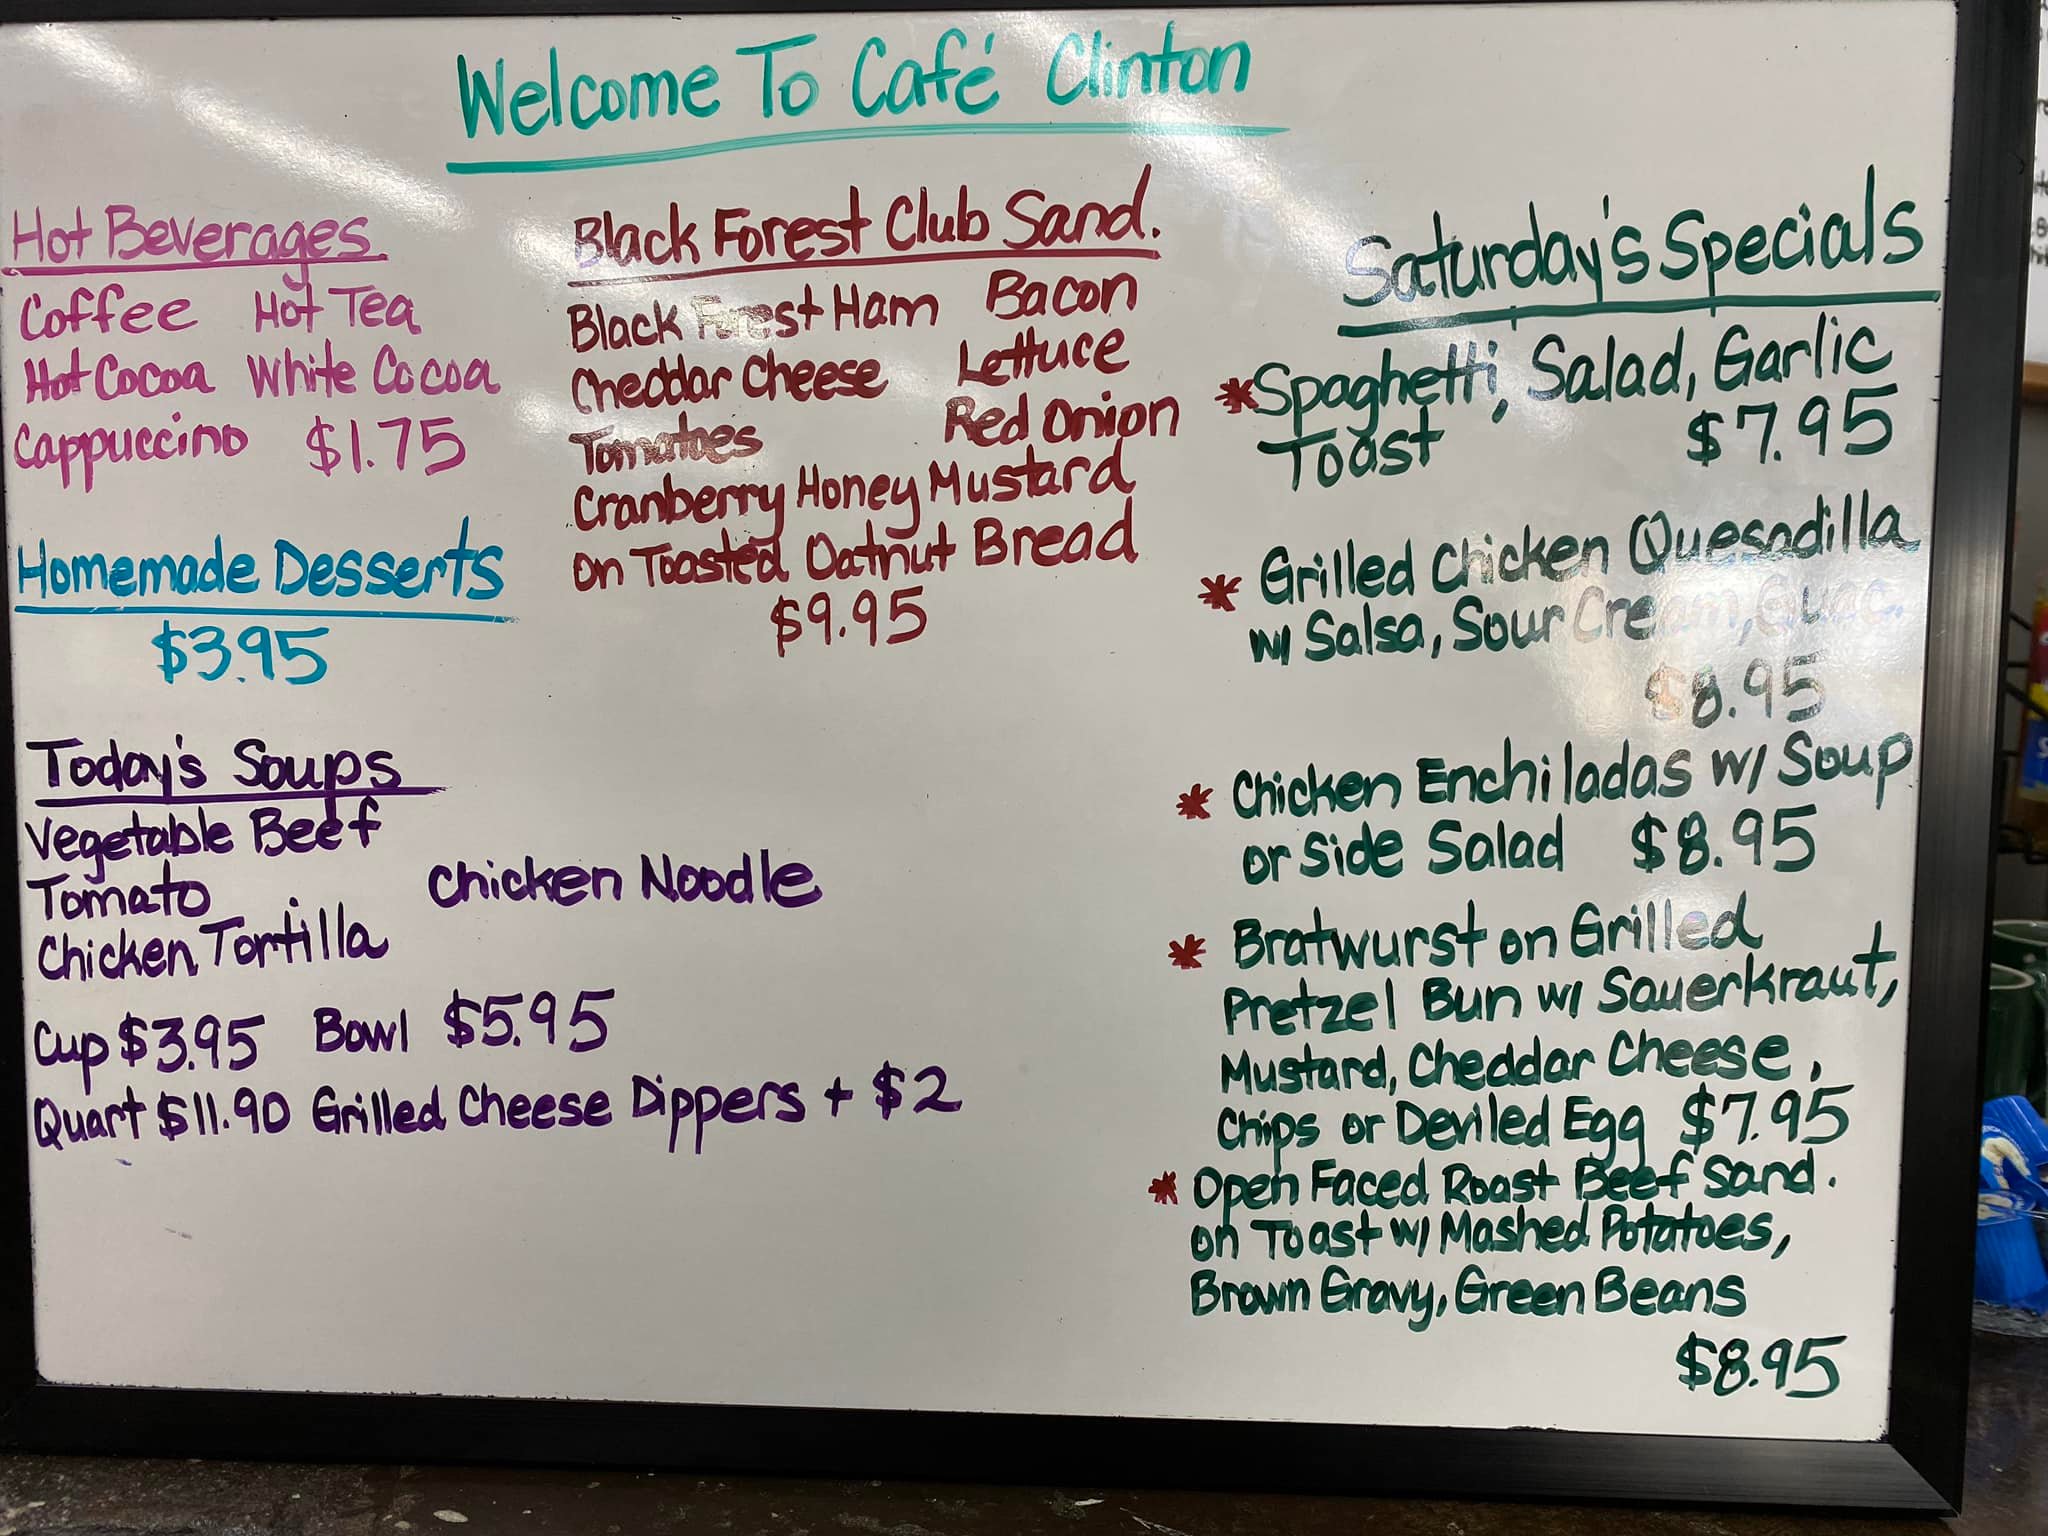 Welcome To Café Clinton
Hot Beverages
Coffee Hot Tea
Hot Cocoa White Cocoa
Cappuccino $1.75
Homemade Desserts
$3.95
Today's Soups
Vegetable Beef
Tomato Chicken Noodle
Chicken Tortilla
Cup $3.95 Bowl $5.95
Quart $11.90 Grilled Cheese Dippers + $2
Black Forest Club Sand.
Black Forest Ham Bacon
Cheddar Cheese Lettuce
Tomatoes Red Onion
Cranberry Honey Mustard
on Toasted Oatnut Bread
$9.95
Saturday's Specials
* Spaghetti, Salad, Garlic
Toast $7.95
* Grilled Chicken Quesadilla
w/ Salsa, Sour Cream, Guac.
$8.95
* Chicken Enchiladas w/ Soup
or Side Salad $8.95
* Bratwurst on Grilled
Pretzel Bun w/ Sauerkraut,
Mustard, Cheddar Cheese,
Chips or Deviled Egg $7.95
* Open Faced Roast Beef Sand.
on Toast w/ Mashed Potatoes,
Brown Gravy, Green Beans
$8.95